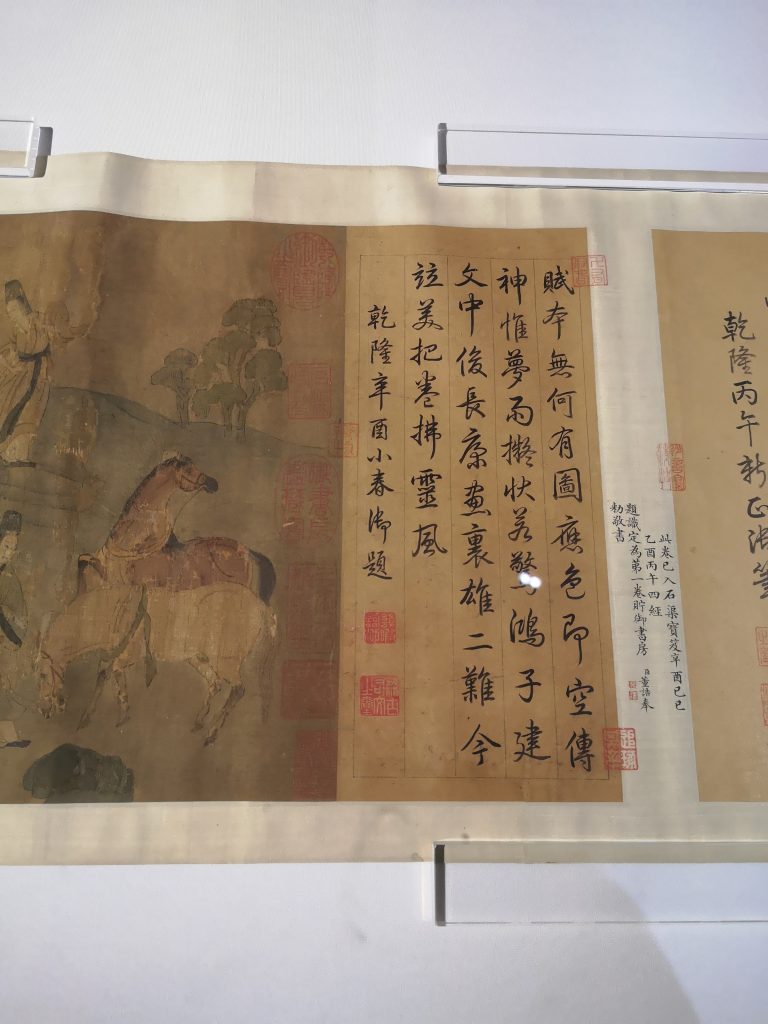 乾隆丙午新正御筆
此卷已入石渠寶笈辛酉己巳
乙酉丙午四經
題識定為第一卷貯御書房 臣董誥奉
勅敬書
賦本無何有圖應色即空傳
神惟夢雨擬狀若驚鴻子建
文中俊長康畫裏雄二難今
竝美把卷拂靈風
乾隆辛酉小春御題